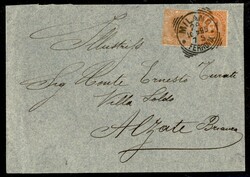 MILANO
FERROVIA
Illustriss
Sig Conte Ernesto Turati
Villa Soldo
Alzate Brianza